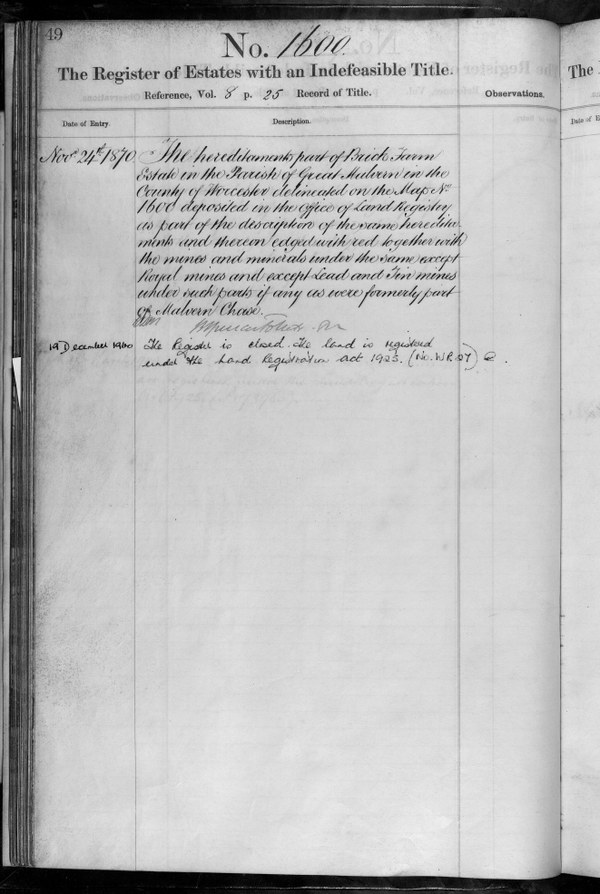 49
No. 1600.
The Register of Estates with an Indefeasible Title.
Reference, Vol. 8 p. 25 Record of Title.
Observations.
Date of Entry.
Description.
Novr 24th 1870.
The hereditaments part of Brick Farm
Estate in the Parish of Great Malvern in the
County of Worcester delineated on the Map No
1600 deposited in the Office of Land Registry
as part of the description of the same heredita
ments and thereon edged with red together with
the mines and minerals under the same except
Royal mines and except Lead and Tin mines
under such parts if any as were formerly part
of Malvern Chase.
19 December 1940
The Register is closed. The land is registered
under the Land Registration Act 1925. (No. WR. 27)
The
Date of E